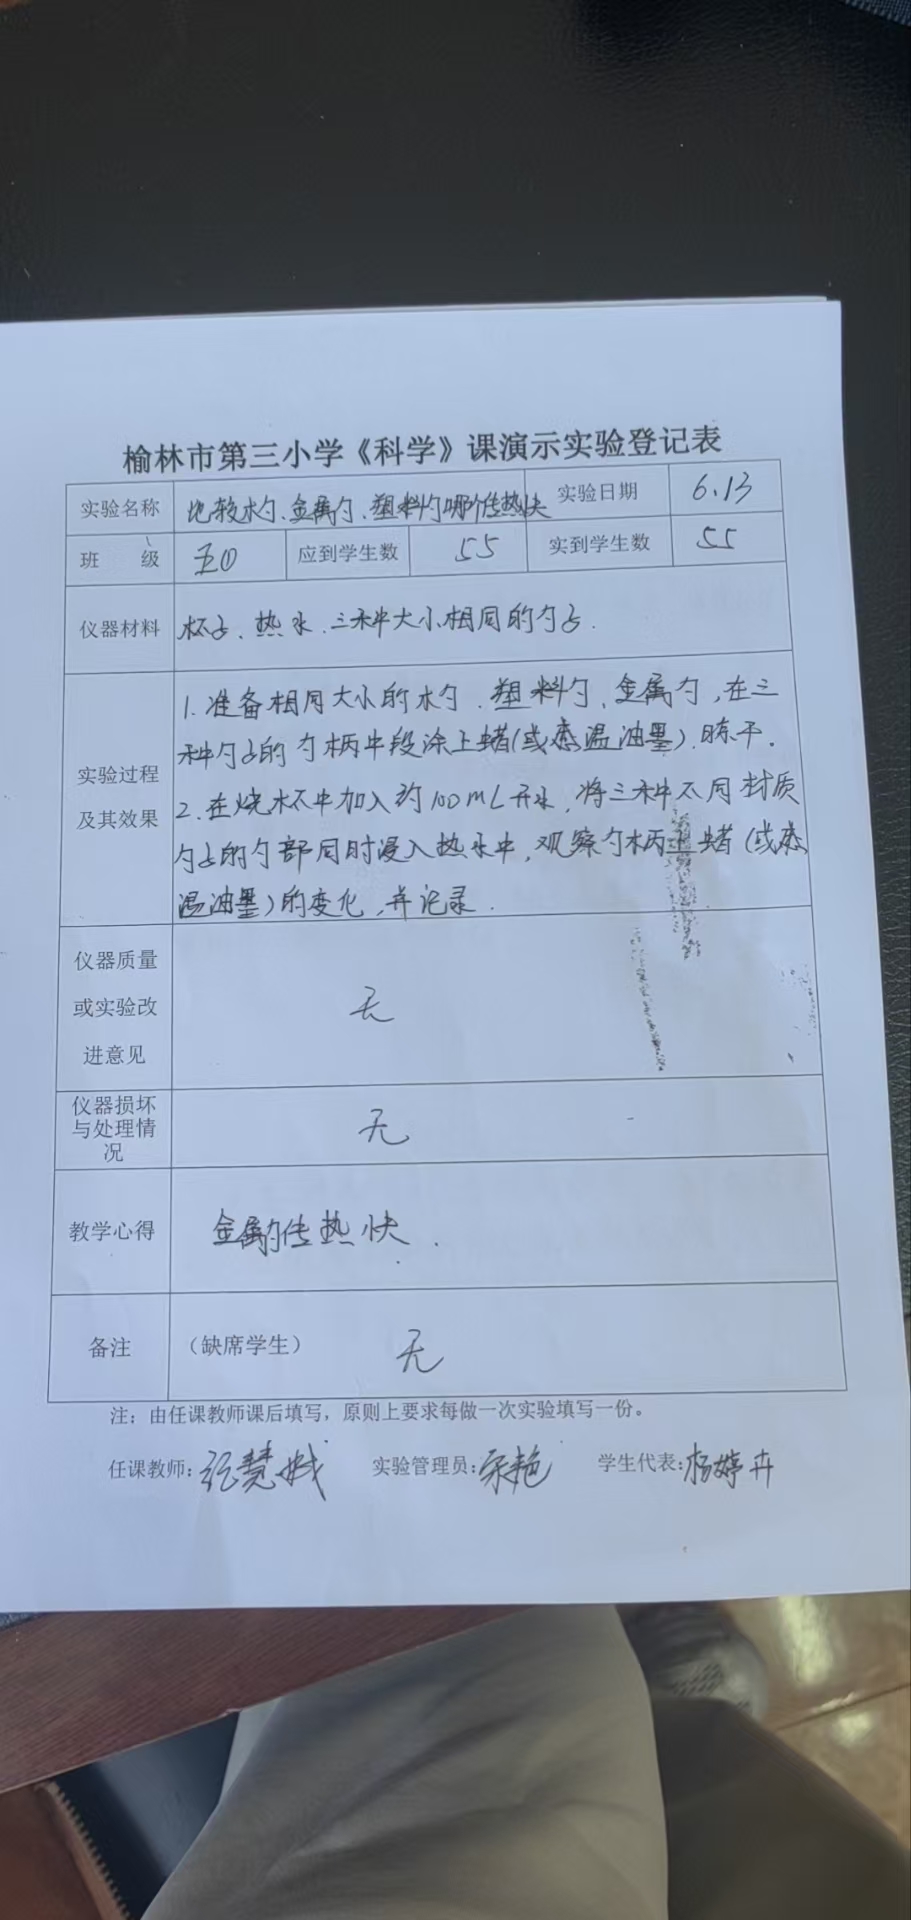 榆林市第三小学《科学》课演示实验登记表
实验名称 比较木勺、金属勺、塑料勺哪个传热快 实验日期 6.13
班 级 五(1) 应到学生数 55 实到学生数 55
仪器材料 杯子、热水、三种大小相同的勺子.
实验过程及其效果
1.准备相同大小的木勺、塑料勺、金属勺,在三
种勺子的勺柄中段涂上蜡(或感温油墨),晾干。
2.在烧杯中加入约100mL开水,将三种不同材质
勺子的勺部同时浸入热水中,观察勺柄上蜡(或感
温油墨)的变化,并记录.
仪器质量
或实验改
进意见
无
仪器损坏
与处理情
况
无
教学心得 金属勺传热快.
备注 (缺席学生) 无
注:由任课教师课后填写,原则上要求每做一次实验填写一份。
任课教师: 实验管理员: 学生代表:杨婷卉